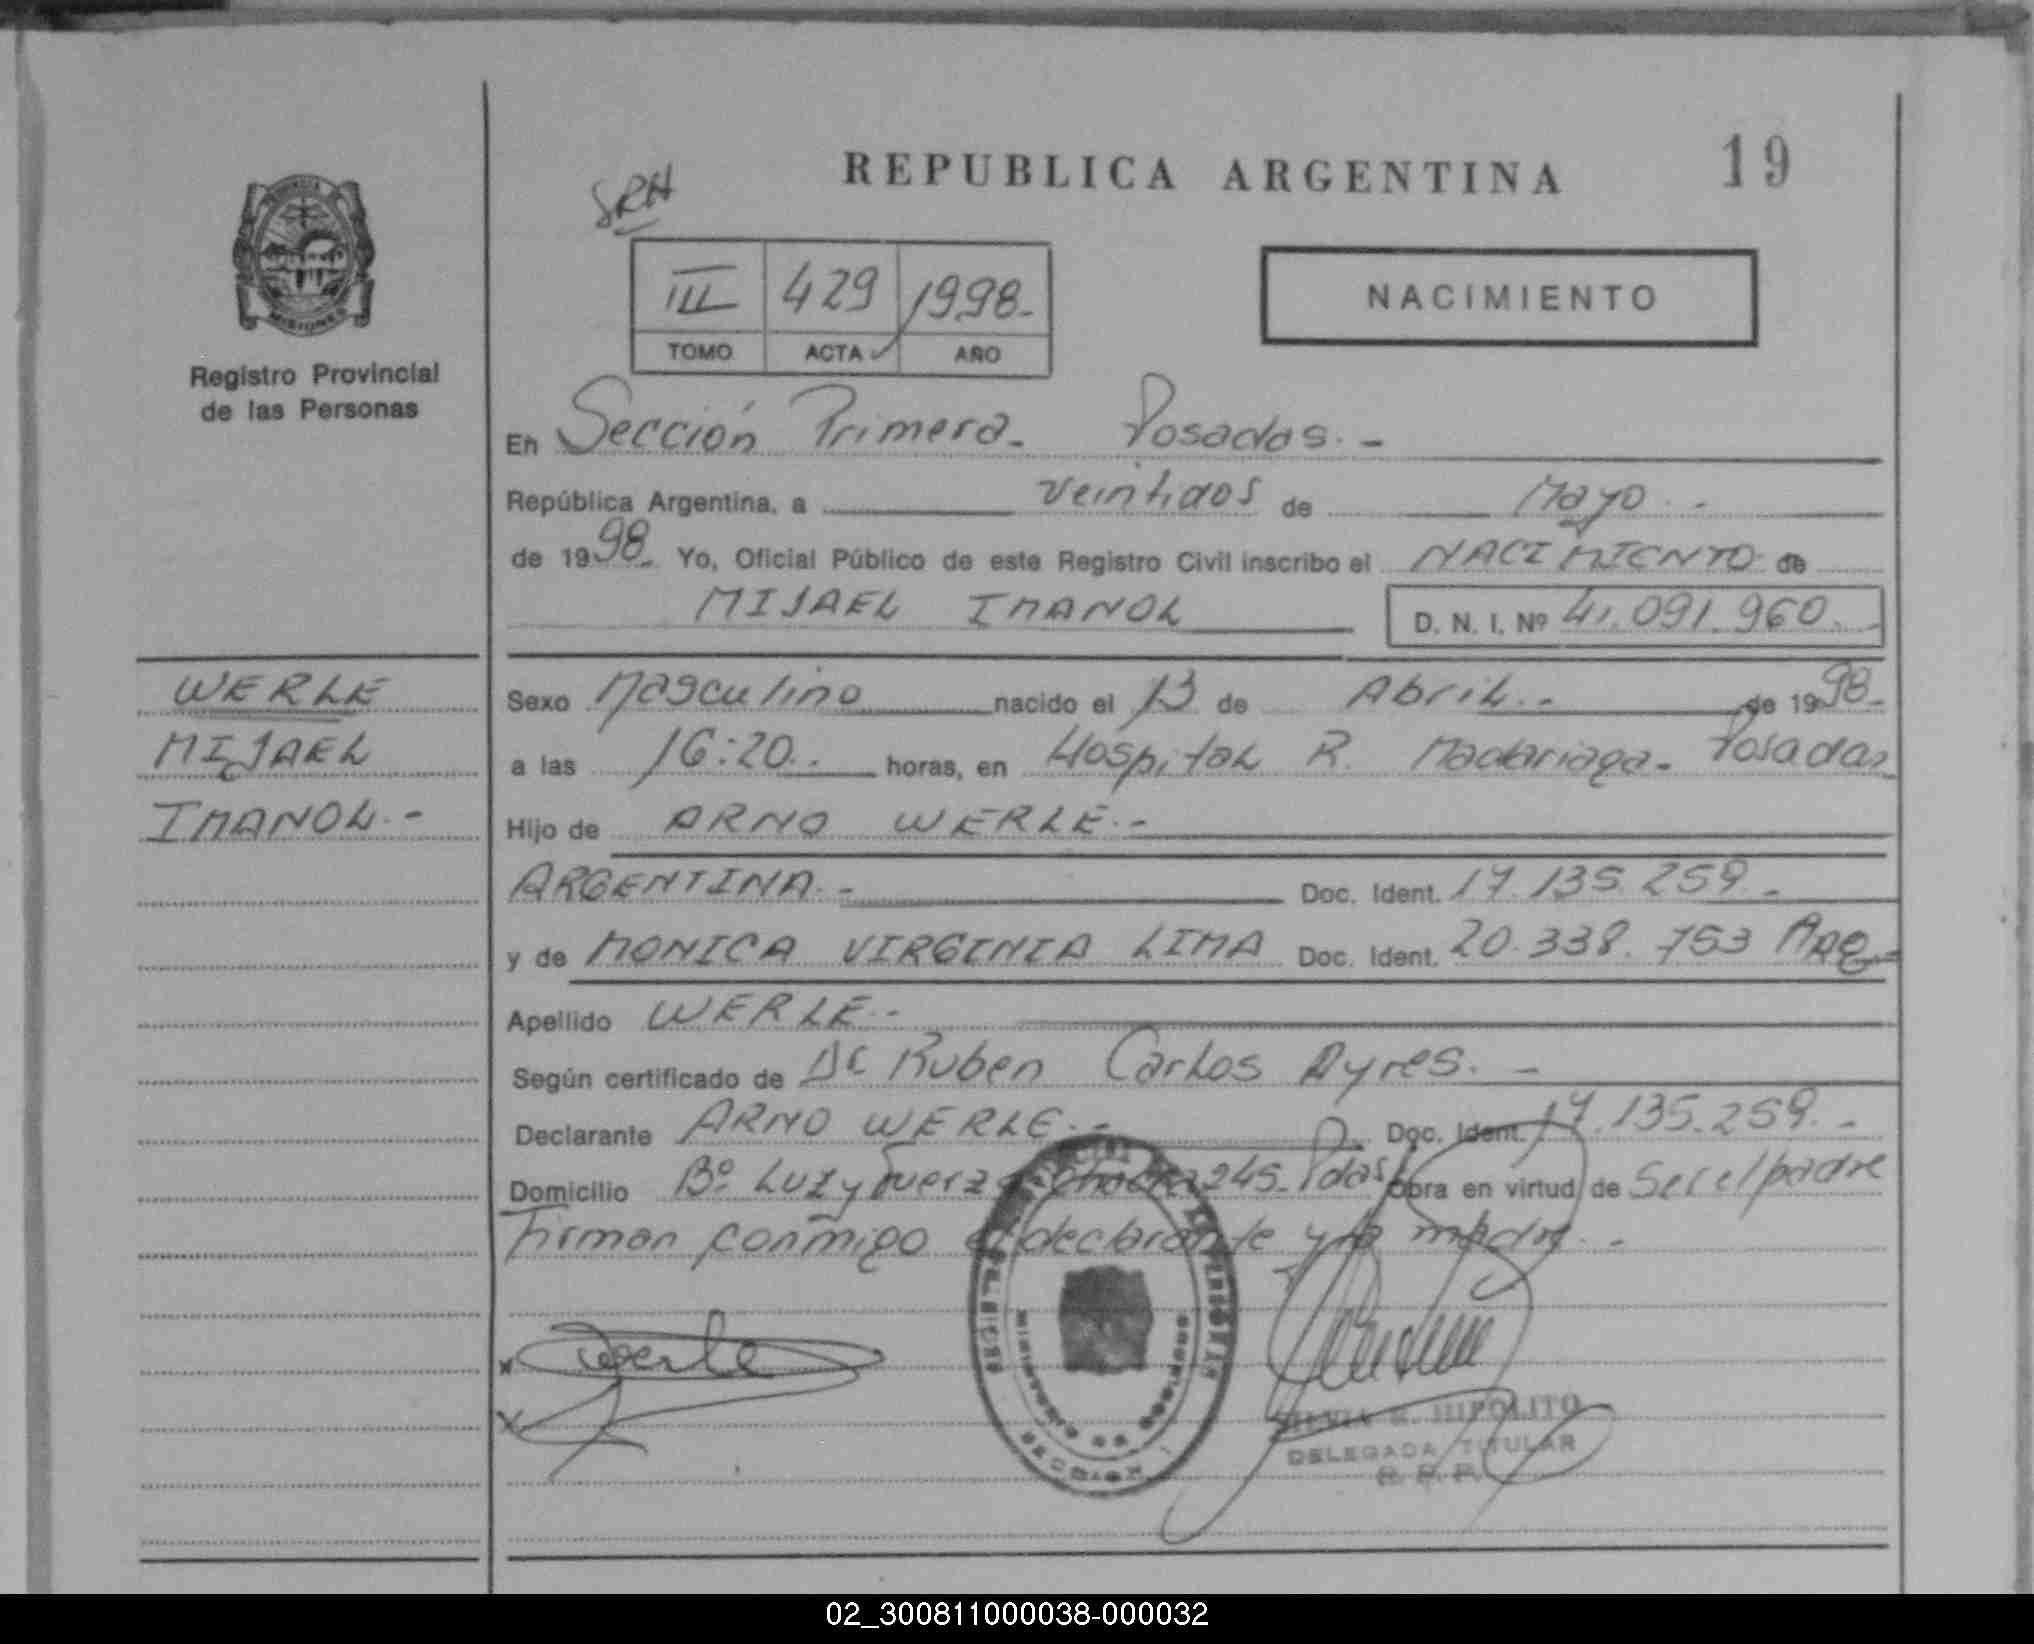 REPUBLICA ARGENTINA 19
SRH
III 429 1998.-
TOMO ACTA AÑO
NACIMIENTO
MISIONES
Registro Provincial
de las Personas
En Sección Primera - Posadas. -
República Argentina, a veintidos de Mayo. -
de 1998. Yo, Oficial Público de este Registro Civil inscribo el NACIMIENTO de
MIJAEL IMANOL D. N. I. Nº 41.091.960.
WERLE
MIJAEL
IMANOL.-
Sexo Masculino nacido el 13 de Abril. - de 1998.-
a las 16:20. horas, en Hospital R. Madariaga. Posadas
Hijo de ARNO WERLE.-
ARGENTINA.- Doc. Ident. 17.135.259.-
y de MONICA VIRGINIA LIMA Doc. Ident. 20.338.753 ARG-
Apellido WERLE.-
Según certificado de Dr Ruben Carlos Ayres. -
Declarante ARNO WERLE.- Doc. Ident. 17.135.259.-
Domicilio Bº Luz y Fuerza 245. Pdas Obra en virtud de Ser el padre
Firman conmigo el declarante y la madre. -
x Werle
x
SILVIA R. HIPOLITO
DELEGADA TITULAR
02_300811000038-000032